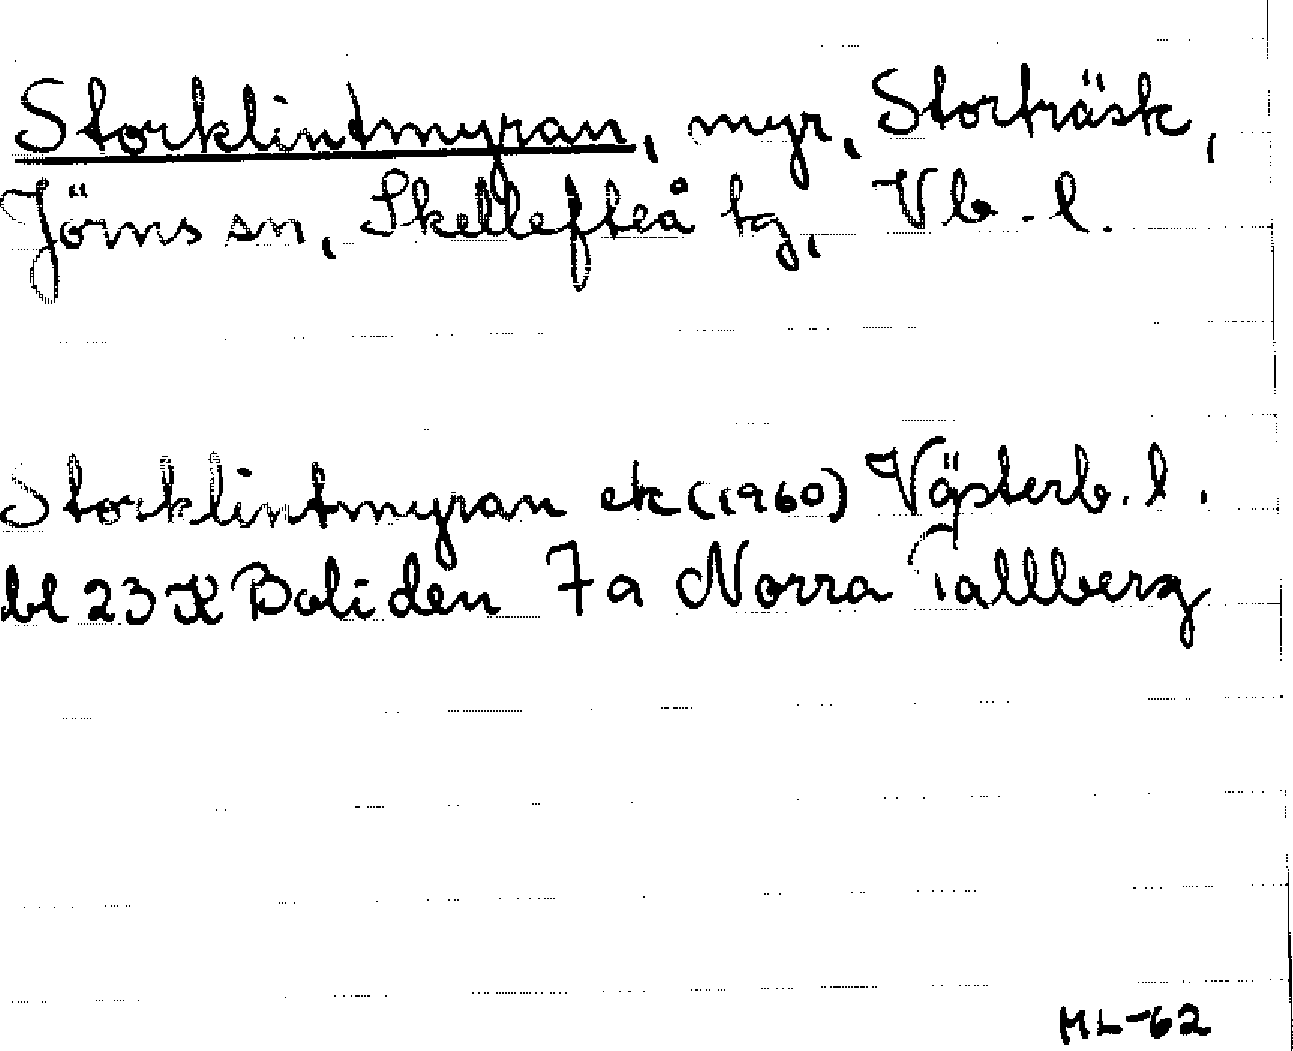 Storklintmyran, myr, Storträsk,
Jörns sn, Skellefteå tg, Vb.l.
Storklintmyran ek (1960) Västerb. l.
bl 23 K Boliden 7a Norra Tallberg
ML-62